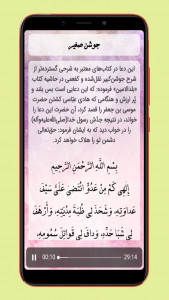 جوشن صغیر
این دعا در کتاب‌های معتبر به شرحی گسترده‌تر از
شرح جوشن‌کبیر نقل‌شده و کفعمی در حاشیه کتاب
«بلدالامین» فرموده: که این دعایی است بس بلند و
پُر ارزش و هنگامی که هادی عبّاسی کشتن حضرت
موسی بن جعفر را قصد کرد، آن حضرت این دعا را
خواند، در نتیجه جدّش رسول خدا(صلی‌الله‌علیه‌وآله)
را در خواب دید که به ایشان فرمود: حق‌تعالی
دشمن تو را هلاک خواهد کرد.
بِسْمِ اللَّهِ الرَّحْمَنِ الرَّحِيمِ
إِلٰهِى كَمْ مِنْ عَدُوٍّ انْتَضىٰ عَلَىَّ سَيْفَ
عَداوَتِهِ، وَشَحَذَ لِى ظُبَةَ مُدْيَتِهِ، وَأَرْهَفَ
لِى شَبَا حَدِّهِ، وَدافَ لِى قَواتِلَ سُمُومِهِ،
00:10 29:14